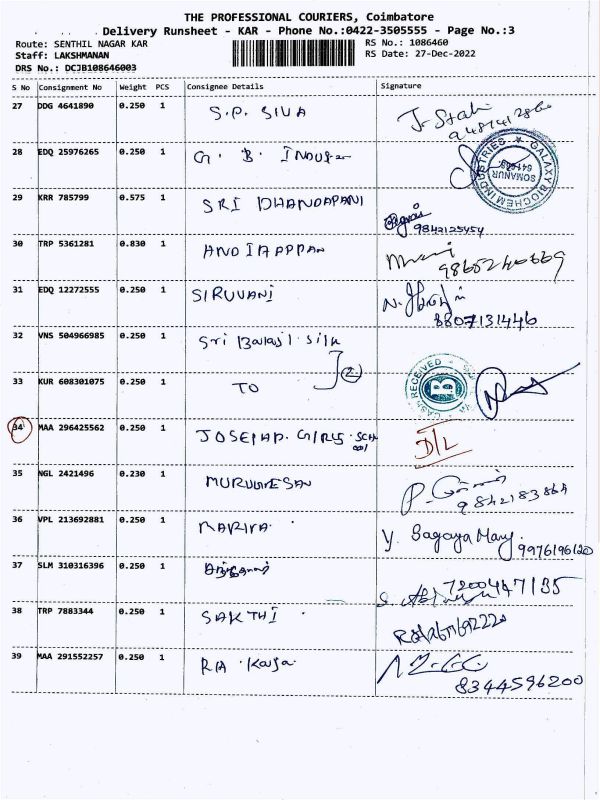 THE PROFESSIONAL COURIERS, Coimbatore
Delivery Runsheet - KAR - Phone No.:0422-3505555 - Page No.:3
Route: SENTHIL NAGAR KAR
RS No.: 1086460
Staff: LAKSHMANAN
RS Date: 27-Dec-2022
DRS No.: DCJB108646003
S No Consignment No Weight PCS Consignee Details Signature
27 DDG 4641890 0.250 1 S.P. SIVA
28 EDQ 25976265 0.250 1 G. B.
GALAXY BIOCHEM INDUSTRIES SOMANUR
29 KRR 785799 0.575 1 SRI DHANDAPANI
9842125454
30 TRP 5361281 0.830 1 ANDIAPPAN
9865240669
31 EDQ 12272555 0.250 1 SIRUVANI
8807131446
32 VNS 504966985 0.250 1 Sri Balaji Silk
2
33 KUR 608301075 0.250 1 TO CASH RECEIVED B
34 MAA 296425562 0.250 1 JOSEPAP. GIRLS. SCH
ool D/L
35 NGL 2421496 0.230 1 MURUGESAN
9842183864
36 VPL 213692881 0.250 1 MARIYA y. Sagaya Mary.
9976196120
37 SLM 310316396 0.250 1
7200447135
38 TRP 7883344 0.250 1 SAKTHI
39 MAA 291552257 0.250 1 RA
8344596200